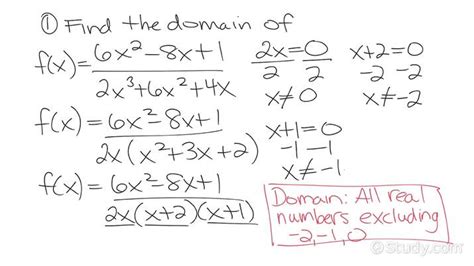 ① Find the domain of
f(x) = 6x²-8x+1
2x³+6x²+4x
f(x) = 6x²-8x+1
2x(x²+3x+2)
f(x) = 6x²-8x+1
2x(x+2)(x+1)
2x=0
2 2
x≠0
x+2=0
-2 -2
x≠-2
x+1=0
-1 -1
x≠-1
Domain: All real
numbers excluding
-2,-1,0
Study.com